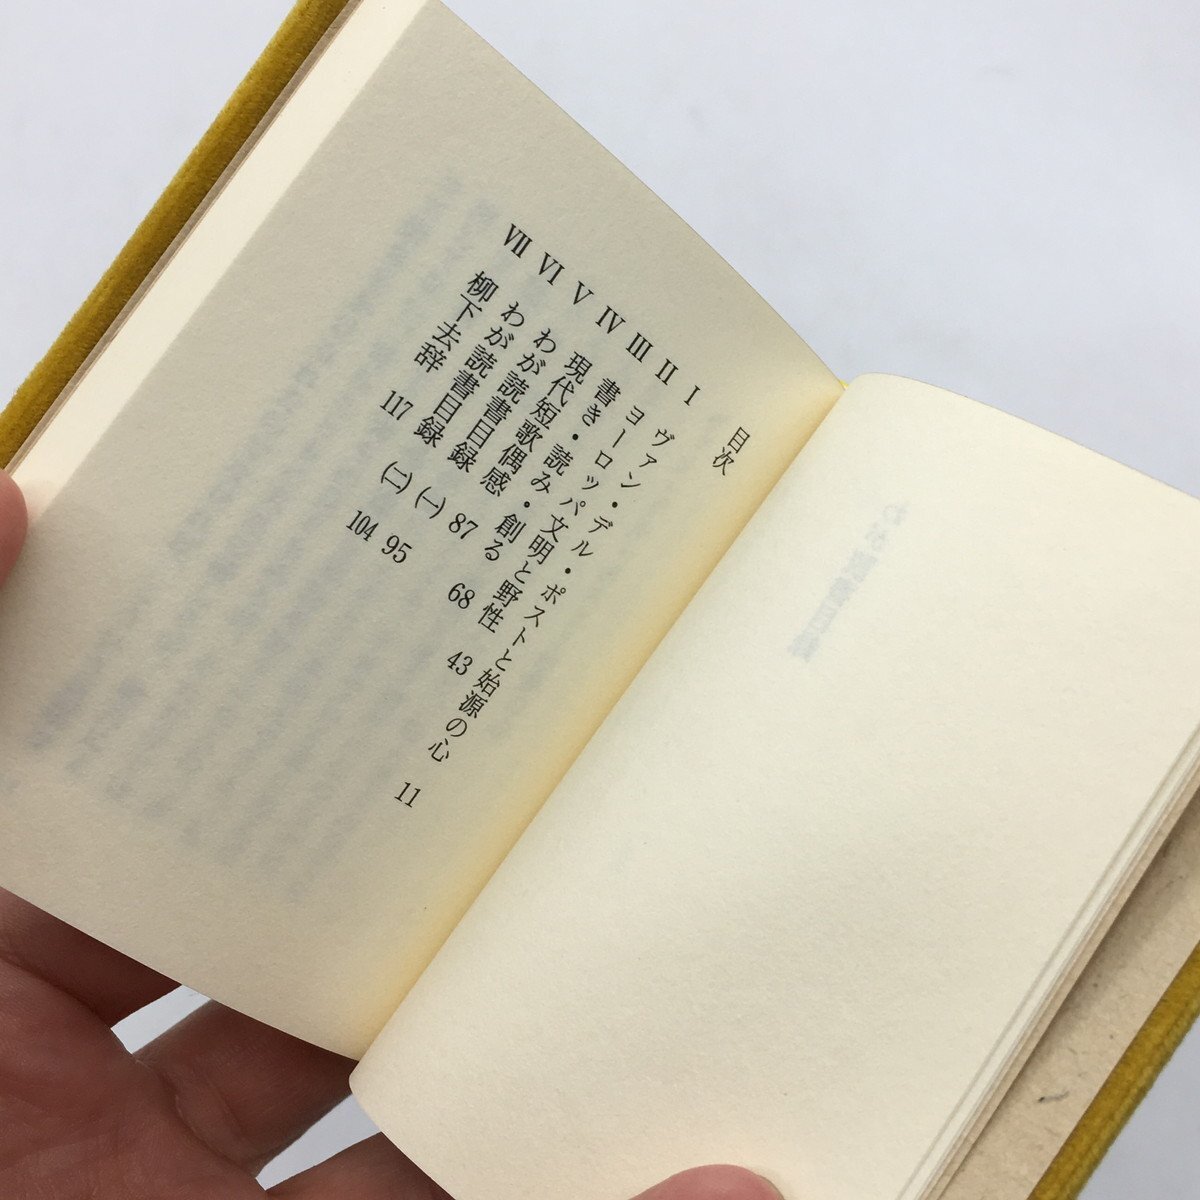 目次
Ⅰ ヴァン・デル・ポストと始源の心 11
Ⅱ ヨーロッパ文明と野性 43
Ⅲ 書き・読み・創る 68
Ⅳ 現代短歌偶感 87
Ⅴ わが読書目録 (一) 95
Ⅵ わが読書目録 (二) 104
Ⅶ 柳下去辞 117